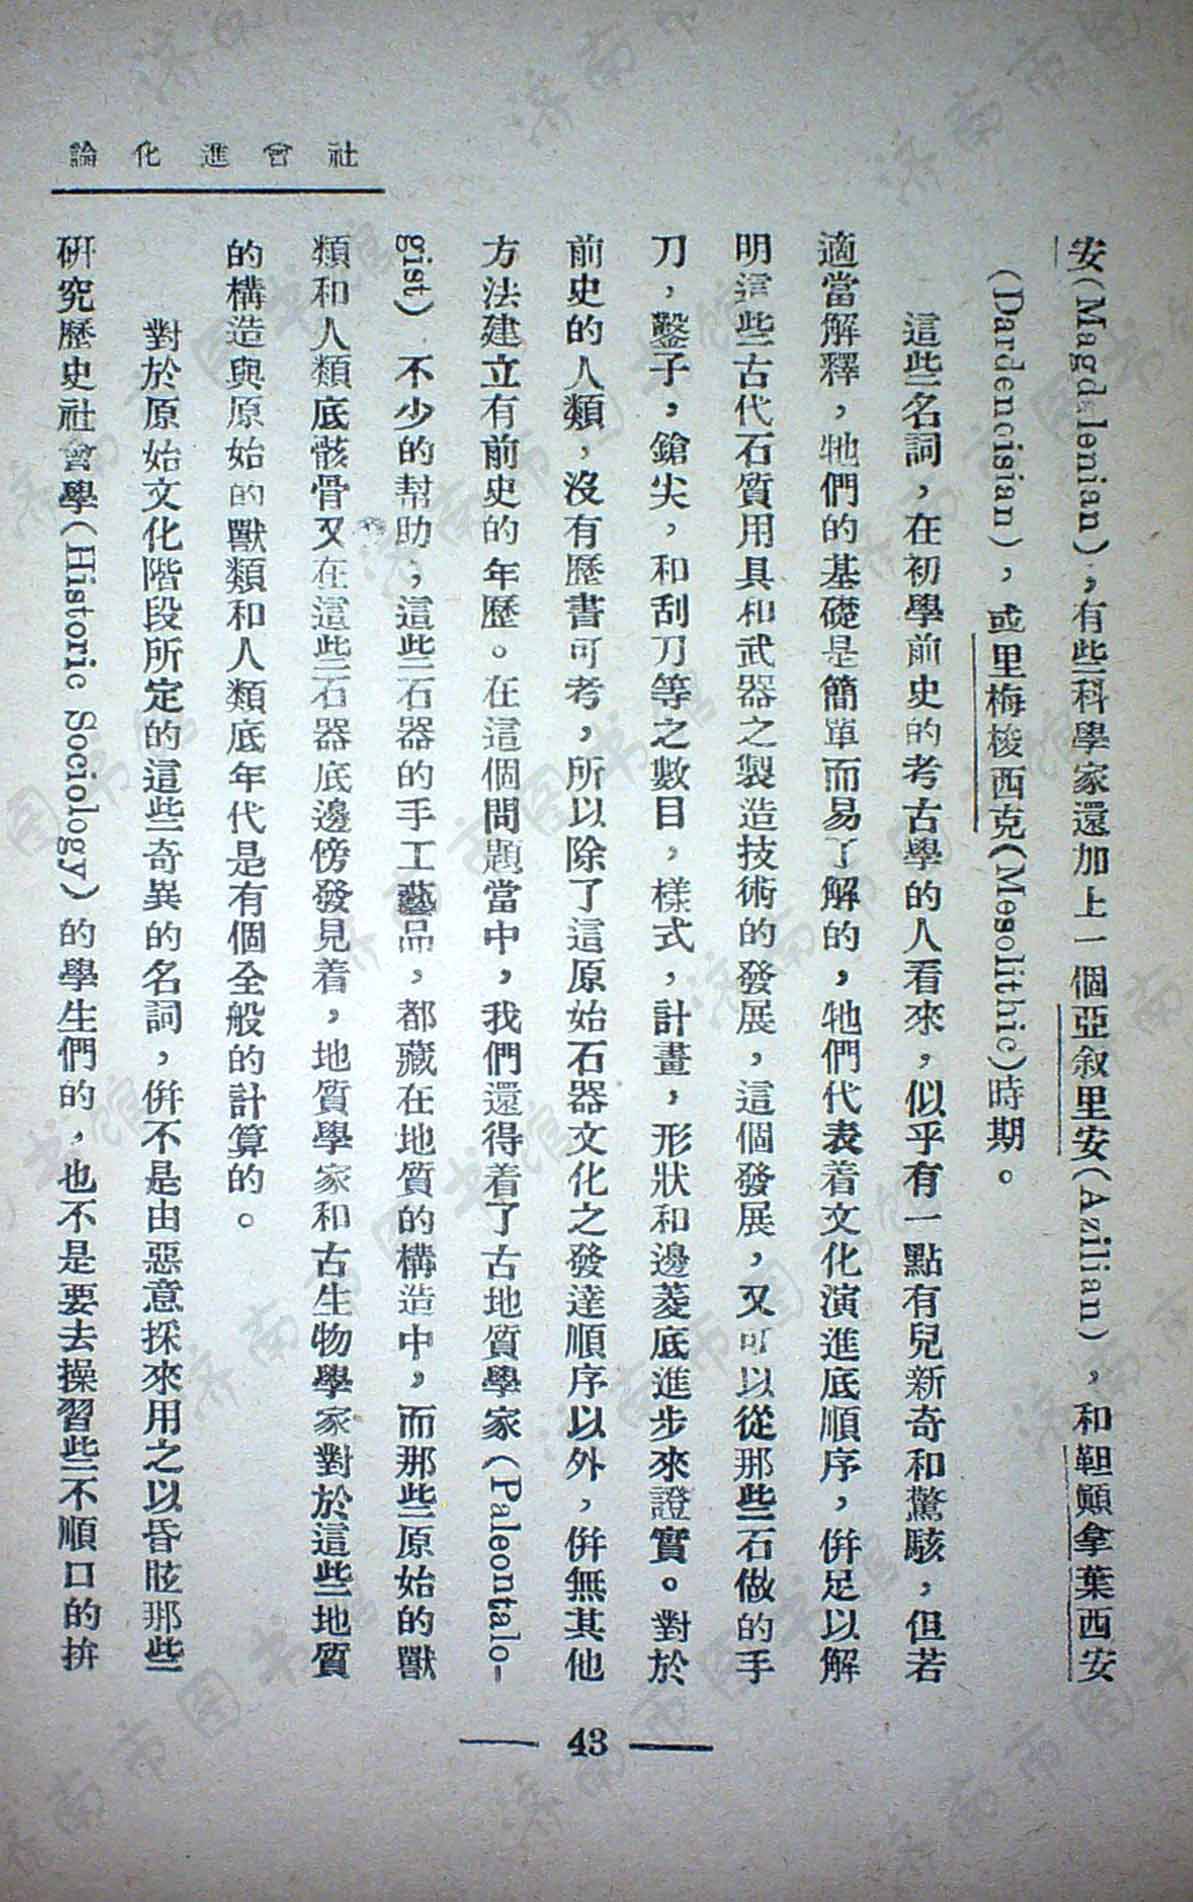 社會進化論
安(Magdalenian)，有些科學家還加上一個亞叙里安(Azilian)，和靼顚拿葉西安
(Dardencisian)，或里梅梭西克(Mesolithic)時期。
這些名詞，在初學前史的考古學的人看來，似乎有一點有兒新奇和驚駭，但若
適當解釋，牠們的基礎是簡單而易了解的，牠們代表着文化演進底順序，併足以解
明這些古代石質用具和武器之製造技術的發展，這個發展，又可以從那些石做的手
刀，鑿子，鎗尖，和刮刀等之數目，樣式，計畫，形狀和邊菱底進步來證實。對於
前史的人類，沒有歷書可考，所以除了這原始石器文化之發達順序以外，併無其他
方法建立有前史的年歷。在這個問題當中，我們還得着了古地質學家(Paleontalo-
gist)不少的幫助，這些石器的手工藝品，都藏在地質的構造中，而那些原始的獸
類和人類底骸骨又在這些石器底邊傍發見着，地質學家和古生物學家對於這些地質
的構造與原始的獸類和人類底年代是有個全般的計算的。
對於原始文化階段所定的這些奇異的名詞，併不是由惡意採來用之以昏眩那些
研究歷史社會學(Historic Sociology)的學生們的，也不是要去操習些不順口的拚
— 43 —
济南市图书馆